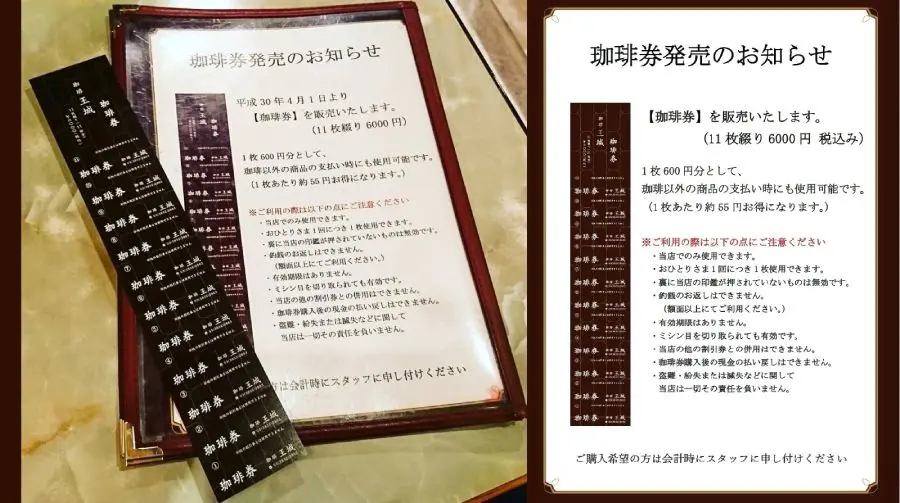 珈琲券発売のお知らせ
平成30年4月1日より
【珈琲券】を販売いたします。
(11枚綴り 6000円)
1枚600円分として、
珈琲以外の商品の支払い時にも使用可能です。
(1枚あたり約55円お得になります。)
※ご利用の際は以下の点にご注意ください
・当店でのみ使用できます。
・おひとりさま1回につき1枚使用できます。
・裏に当店の印鑑が押されていないものは無効です。
・釣銭のお返しはできません。
(額面以上にてご利用ください。)
・有効期限はありません。
・ミシン目を切り取られても有効です。
・当店の他の割引券との併用はできません。
・珈琲券購入後の現金の払い戻しはできません。
・盗難・紛失または滅失などに関して
当店は一切その責任を負いません。
方は会計時にスタッフに申し付けください
珈琲 王城
珈琲券
珈琲券 珈琲 王城
珈琲券 珈琲 王城
珈琲券 珈琲 王城
珈琲券 珈琲 王城
珈琲券 珈琲 王城
珈琲券 珈琲 王城
珈琲券 珈琲 王城
珈琲券 珈琲 王城
珈琲券 珈琲 王城
珈琲券 珈琲 王城
珈琲券 珈琲 王城
珈琲券発売のお知らせ
【珈琲券】を販売いたします。
(11枚綴り 6000円 税込み)
1枚600円分として、
珈琲以外の商品の支払い時にも使用可能です。
(1枚あたり約55円お得になります。)
※ご利用の際は以下の点にご注意ください
・当店でのみ使用できます。
・おひとりさま1回につき1枚使用できます。
・裏に当店の印鑑が押されていないものは無効です。
・釣銭のお返しはできません。
(額面以上にてご利用ください。)
・有効期限はありません。
・ミシン目を切り取られても有効です。
・当店の他の割引券との併用はできません。
・珈琲券購入後の現金の払い戻しはできません。
・盗難・紛失または滅失などに関して
当店は一切その責任を負いません。
ご購入希望の方は会計時にスタッフに申し付けください